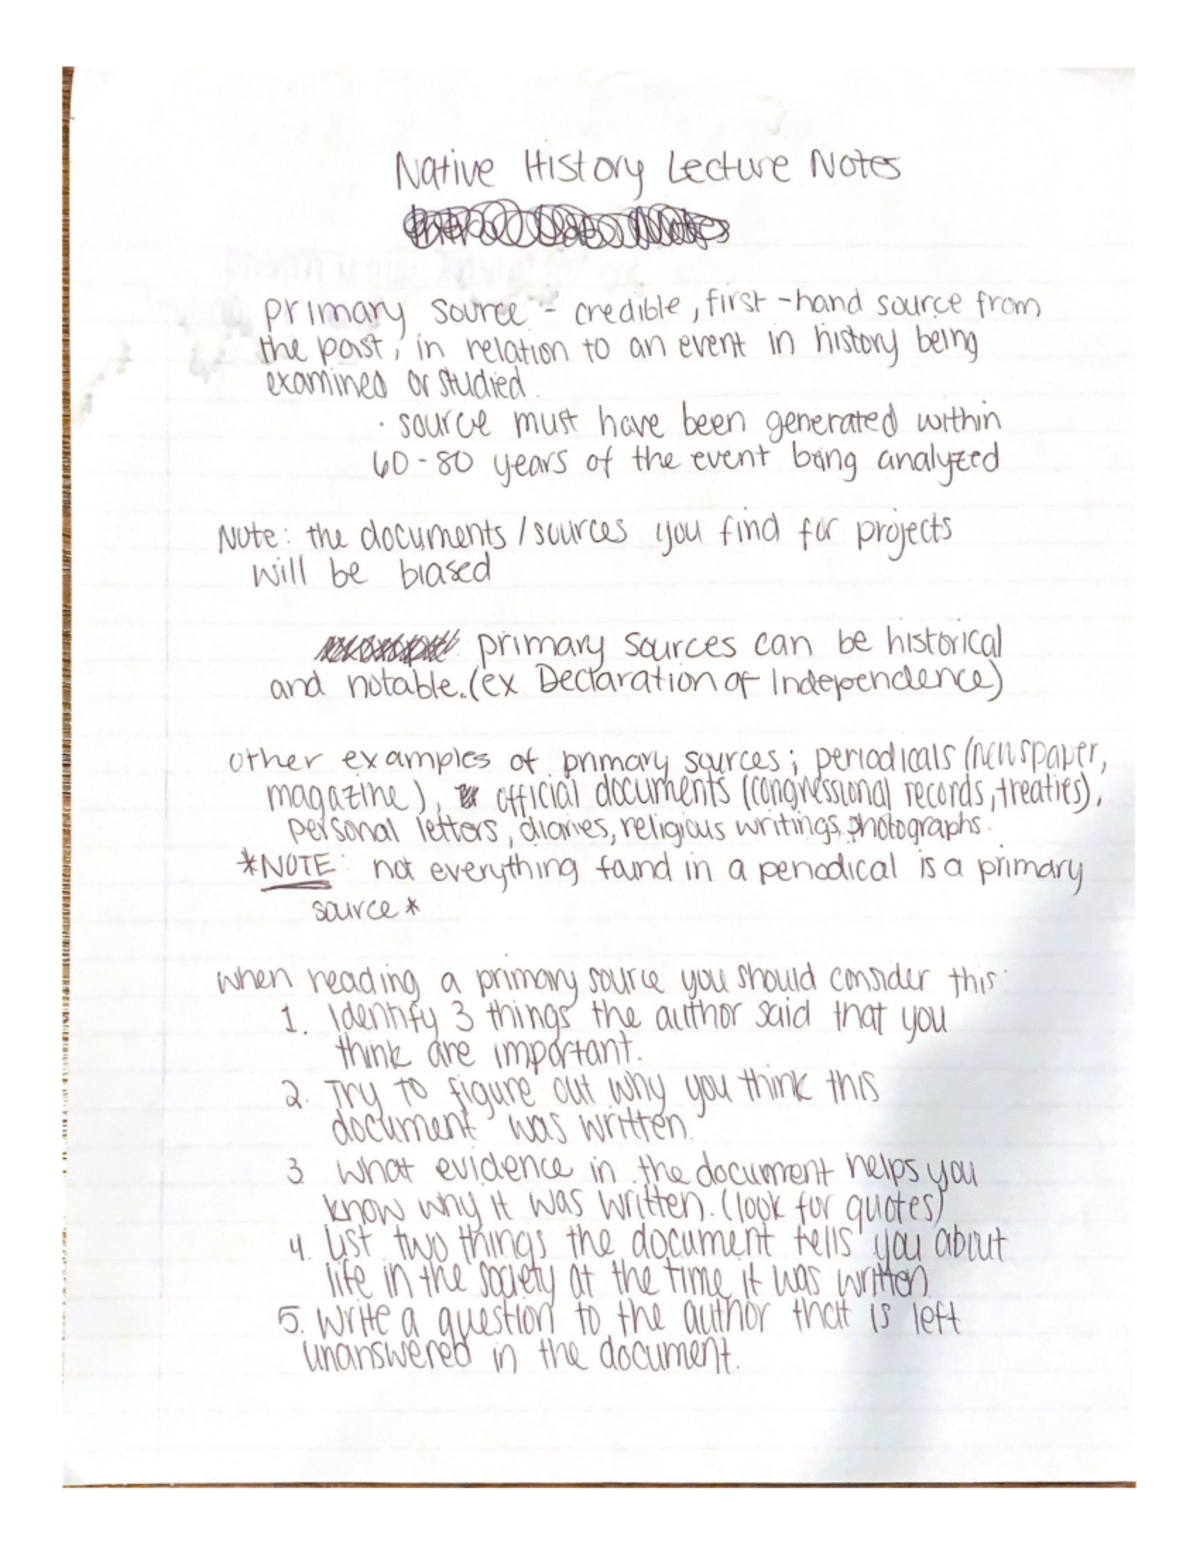 Native History Lecture Notes
Primary Source - credible, first-hand source from
the past, in relation to an event in history being
examined or studied.
· source must have been generated within
60-80 years of the event being analyzed
Note: the documents/sources you find for projects
will be biased
primary sources can be historical
and notable. (ex Declaration of Independence)
other examples of primary sources; periodicals (newspaper,
magazine), official documents (congressional records, treaties),
personal letters, diaries, religious writings, photographs.
*NOTE: not everything found in a periodical is a primary
source*
when reading a primary source you should consider this:
1. Identify 3 things the author said that you
think are important.
2. Try to figure out why you think this
document was written.
3. What evidence in the document helps you
know why it was written. (look for quotes)
4. List two things the document tells you about
life in the society at the time it was written
5. Write a question to the author that is left
unanswered in the document.